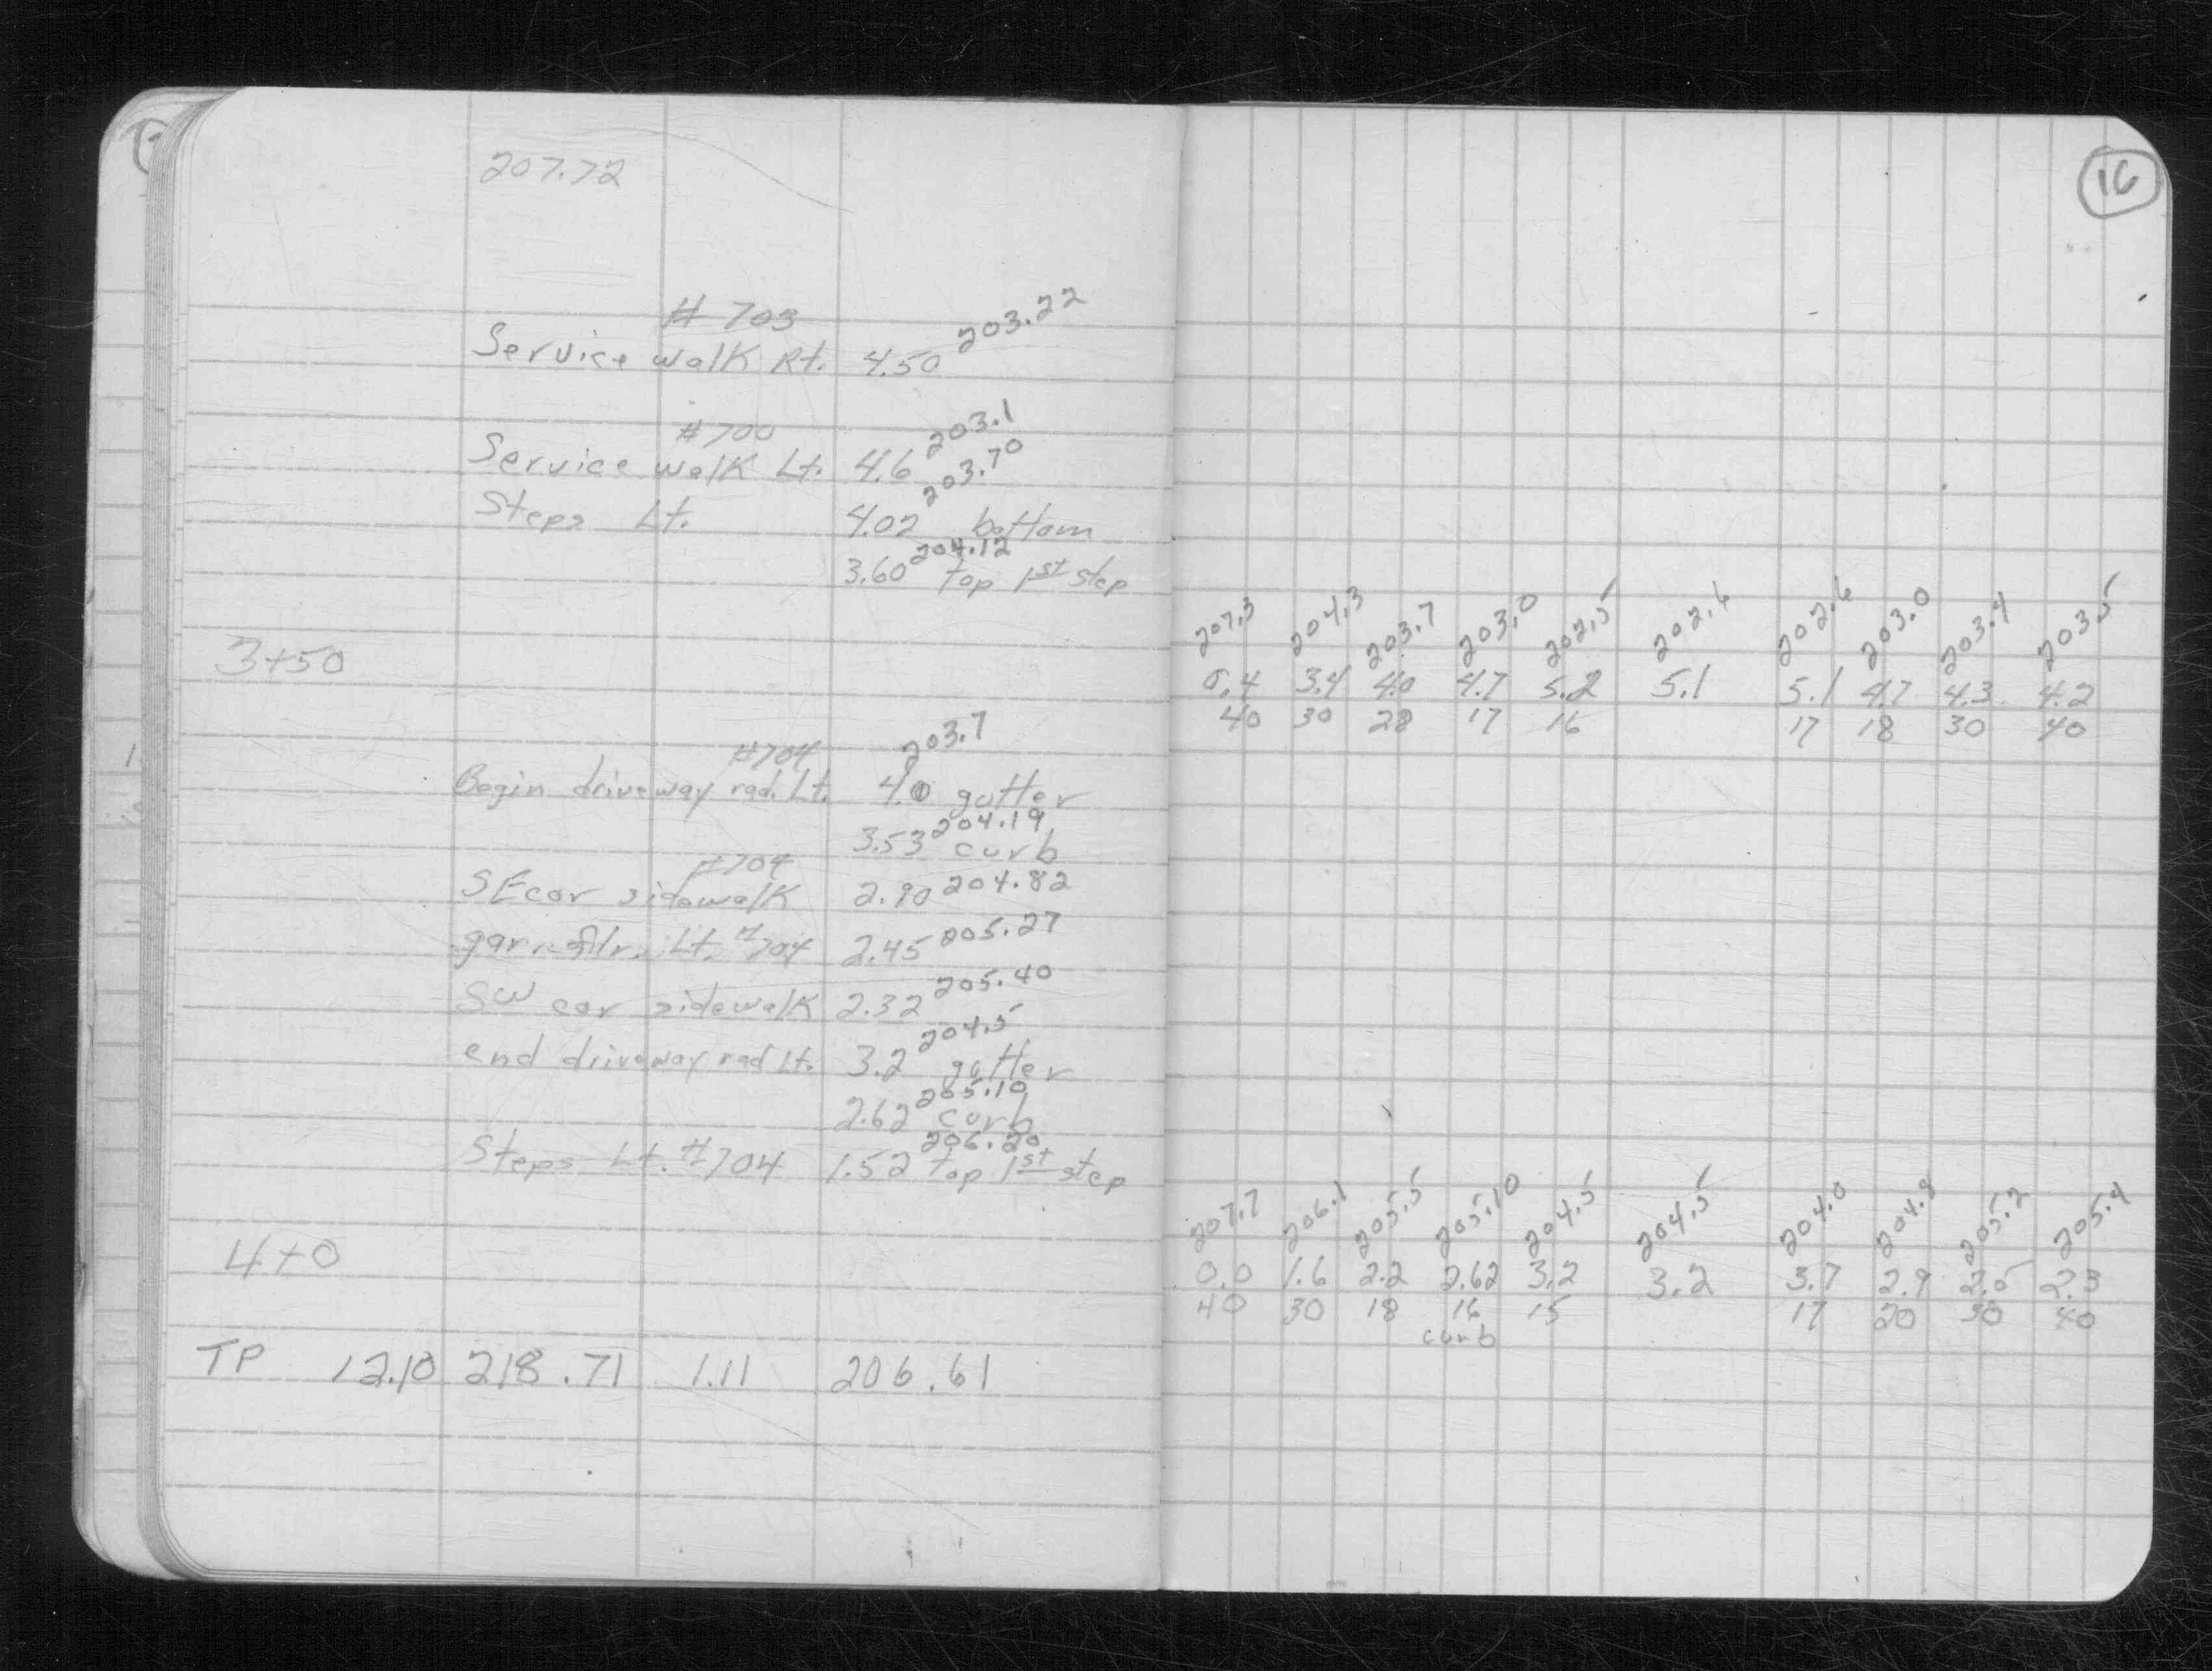 207.72
16
# 703
203.22
Service walk Rt. 4.50
# 700
203.1
Service walk Lt. 4.6
203.70
Steps Lt. 4.02 bottom
204.12
3.60 top 1st step
207.3 204.3 203.7 203.0 202.5 202.6 202.6 203.0 203.4 203.5
3+50 0.4 3.4 4.0 4.7 5.2 5.1 5.1 4.7 4.3 4.2
40 30 28 17 16 17 18 30 40
#704 203.7
Begin driveway rad. Lt. 4.0 gutter
204.19
3.53 curb
#704
SE cor sidewalk 2.90 204.82
gar. flr. Lt. #704 2.45 205.27
SW cor sidewalk 2.32 205.40
204.5
end driveway rad Lt. 3.2 gutter
205.10
2.62 curb
206.20
Steps Lt. #704 1.52 top 1st step
207.7 206.1 205.5 205.10 204.5 204.5 204.0 204.8 205.2 205.4
4+0 0.0 1.6 2.2 2.62 3.2 3.2 3.7 2.9 2.5 2.3
40 30 18 16 15 17 20 30 40
curb
TP 12.10 218.71 1.11 206.61